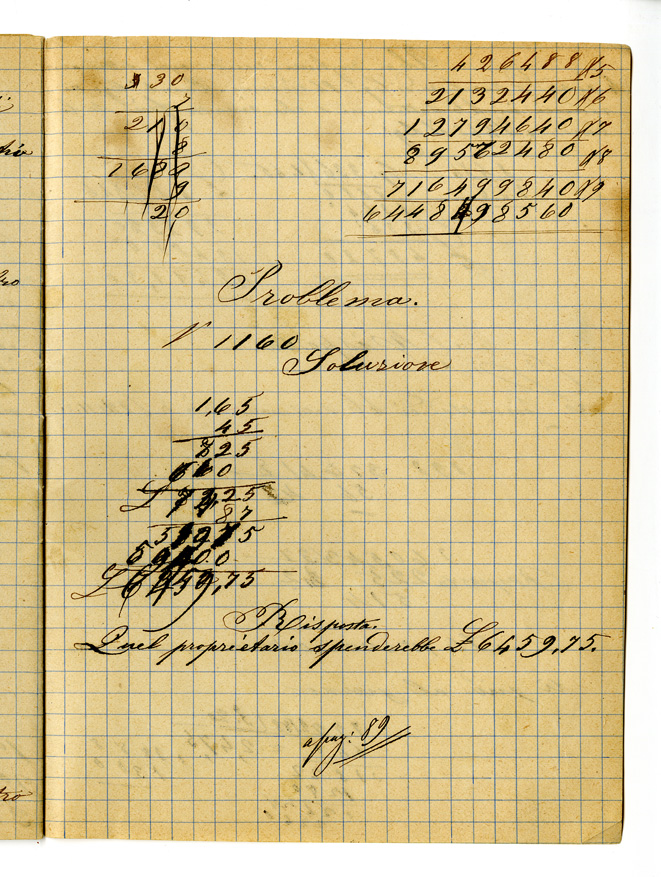 30
210
8
1680
9
20
426488 X5
2132440 X6
12794640 X7
89562480 X8
716499840 X9
6448498560
Problema.
N 1160
Soluzione
1,65
45
825
660
87
£ 6459,75
Risposta.
Quel proprietario spenderebbe £ 6459,75.
a pag: 89